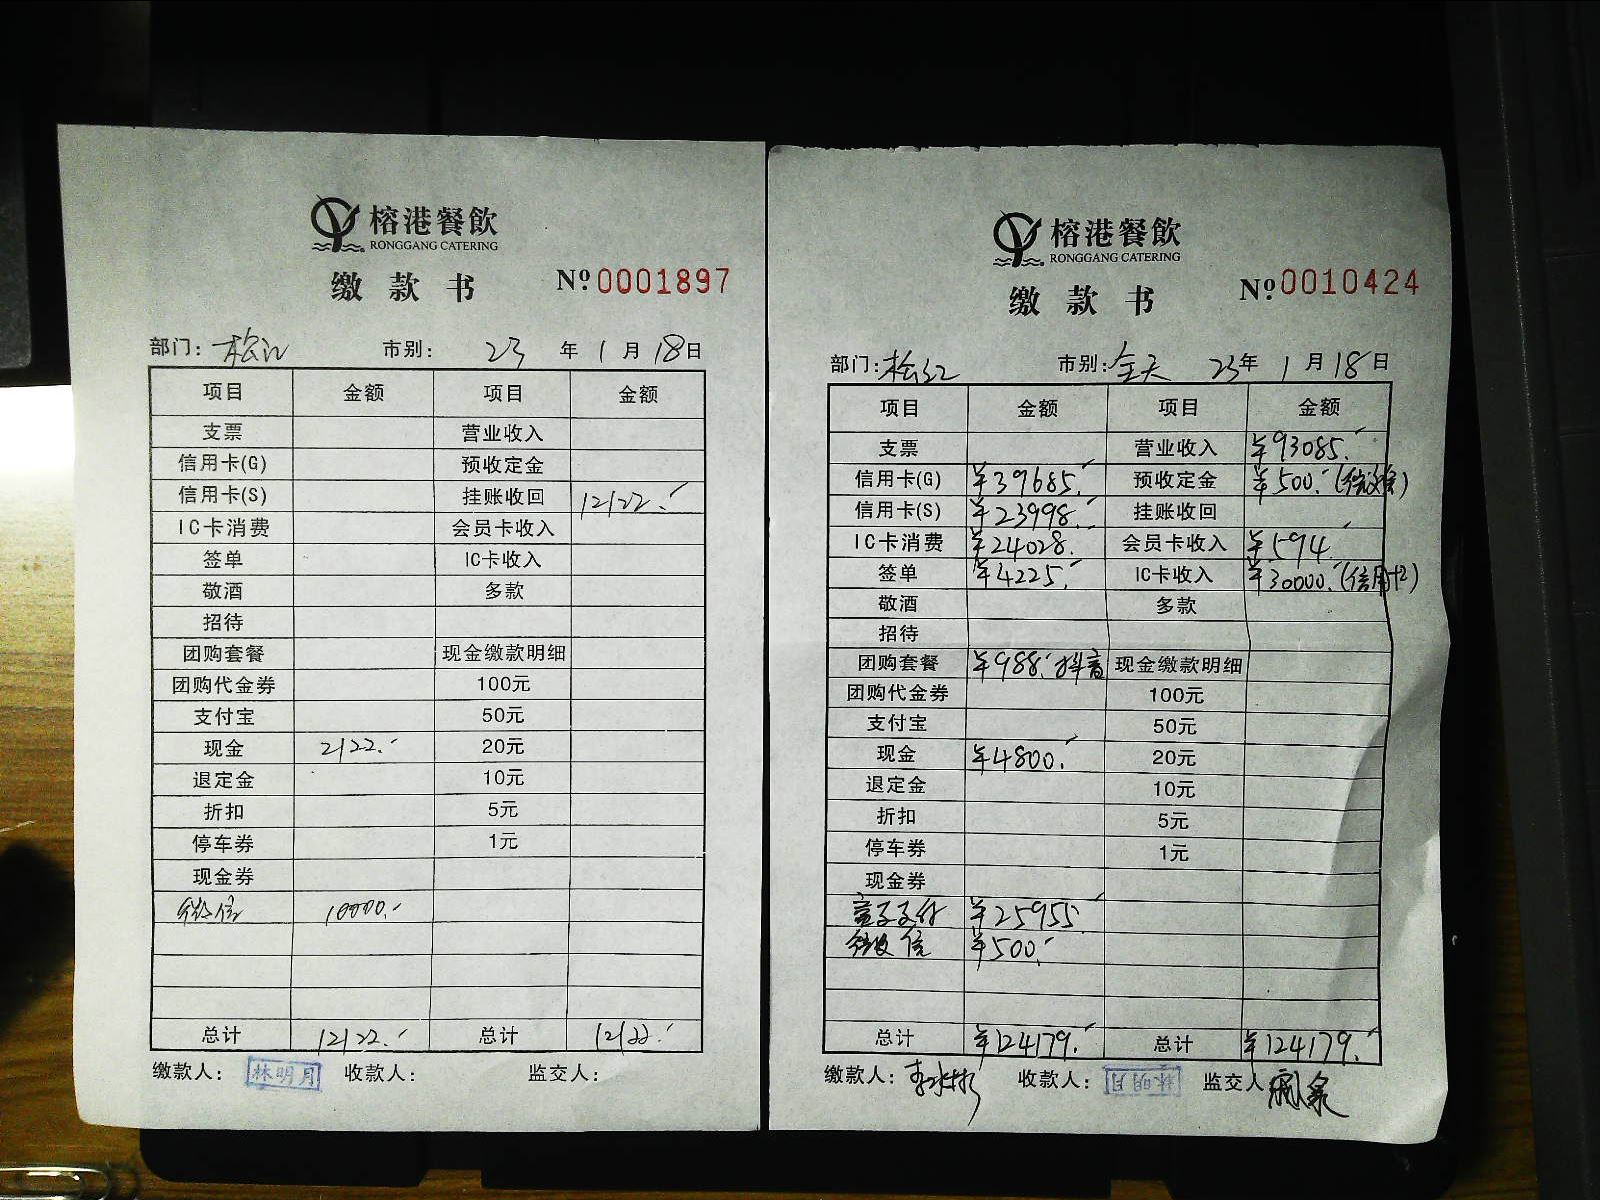 榕港餐飲
RONGGANG CATERING
缴款书 Nº 0001897
部门: 松江 市别: 23年1月18日
项目 金额 项目 金额
支票 营业收入
信用卡(G) 预收定金
信用卡(S) 挂账收回 12122.-
IC卡消费 会员卡收入
签单 IC卡收入
敬酒 多款
招待
团购套餐 现金缴款明细
团购代金券 100元
支付宝 50元
现金 2122.- 20元
退定金 10元
折扣 5元
停车券 1元
现金券
微信 10000.-
总计 12122.- 总计 12122.-
缴款人: 林明月 收款人: 监交人:
榕港餐飲
RONGGANG CATERING
缴款书 Nº 0010424
部门: 松江 市别: 全天 23年1月18日
项目 金额 项目 金额
支票 营业收入 ¥93085.-
信用卡(G) ¥39685.- 预收定金 ¥500.-(微信)
信用卡(S) ¥23998.- 挂账收回
IC卡消费 ¥24028.- 会员卡收入 ¥594.-
签单 ¥4225.- IC卡收入 ¥30000.-(信用卡)
敬酒 多款
招待
团购套餐 ¥988.-抖音 现金缴款明细
团购代金券 100元
支付宝 50元
现金 ¥4800.- 20元
退定金 10元
折扣 5元
停车券 1元
现金券
支付 ¥25955.-
微信 ¥500.-
总计 ¥124179.- 总计 ¥124179.-
缴款人: 收款人: 林明月 监交人